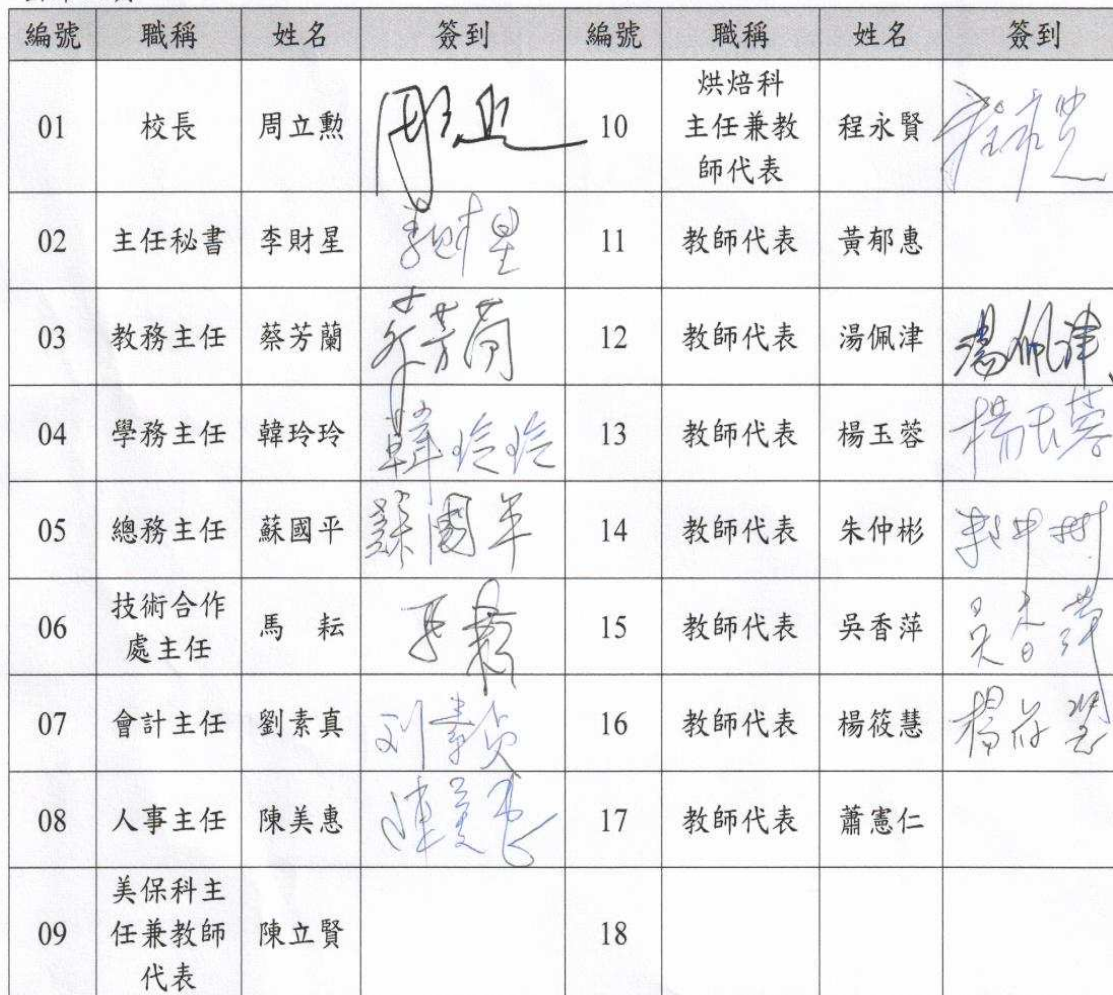 編號 職稱 姓名 簽到 編號 職稱 姓名 簽到
01 校長 周立勲 周立 10 烘焙科主任兼教師代表 程永賢 程永賢
02 主任秘書 李財星 李財星 11 教師代表 黃郁惠
03 教務主任 蔡芳蘭 蔡芳蘭 12 教師代表 湯佩津 湯佩津
04 學務主任 韓玲玲 韓玲玲 13 教師代表 楊玉蓉 楊玉蓉
05 總務主任 蘇國平 蘇國平 14 教師代表 朱仲彬 朱仲彬
06 技術合作處主任 馬 耘 馬耘 15 教師代表 吳香萍 吳香萍
07 會計主任 劉素真 刘素真 16 教師代表 楊筱慧 楊筱慧
08 人事主任 陳美惠 陳美惠 17 教師代表 蕭憲仁
09 美保科主任兼教師代表 陳立賢 18